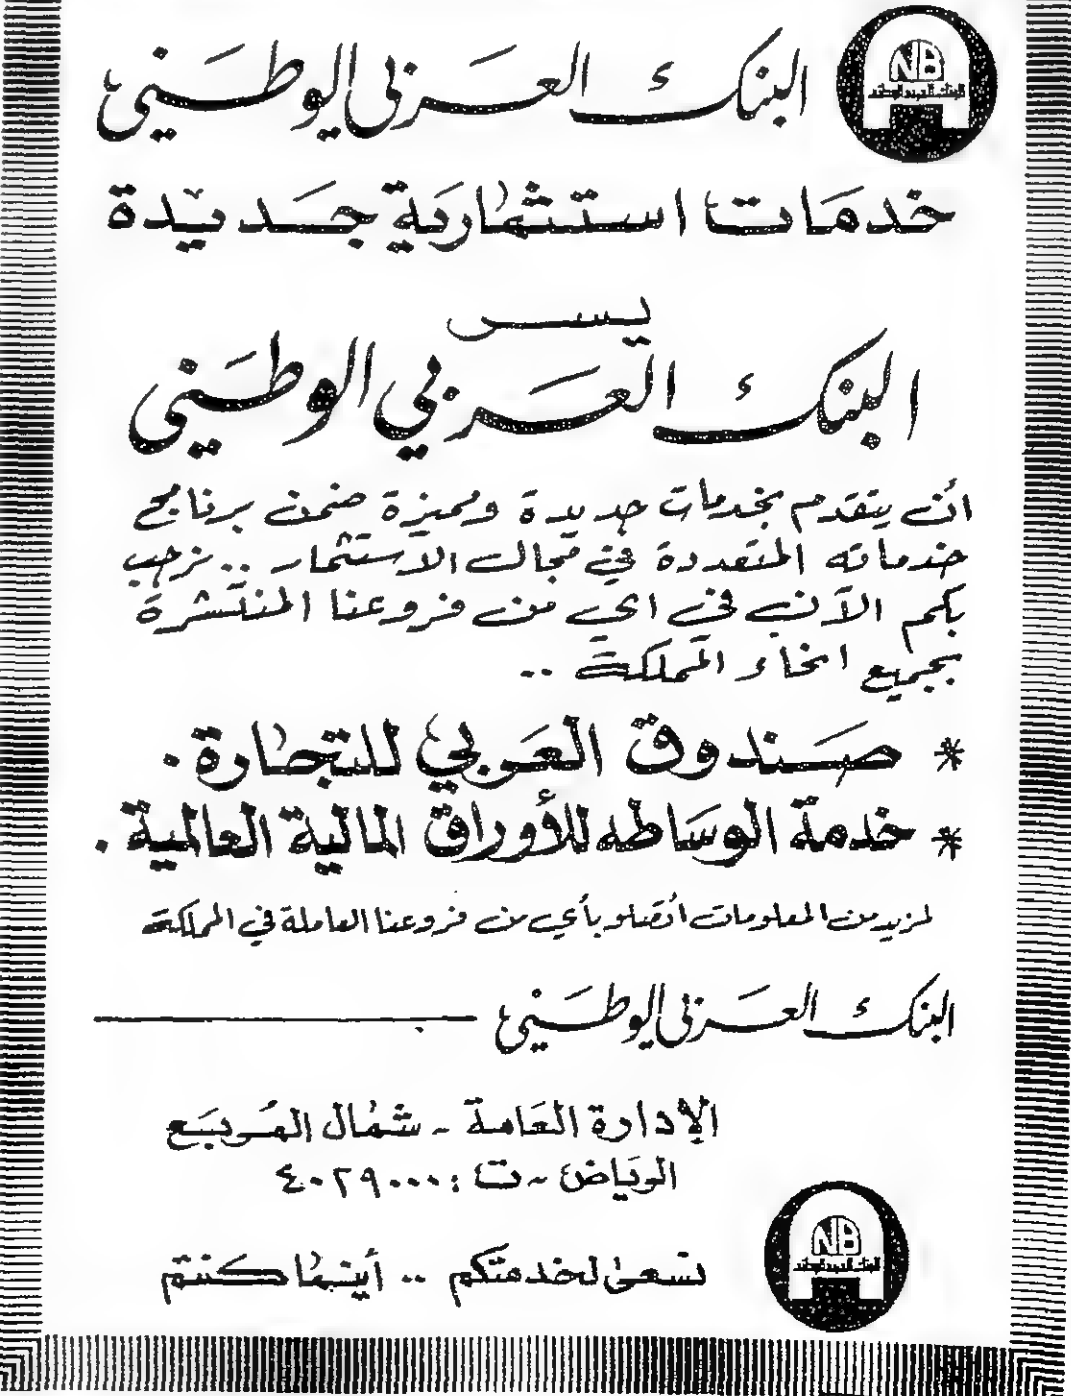 البنك العربي الوطني
NB
البنك العربي الوطني
خدمات استثمارية جديدة
يسر
البنك العربي الوطني
أن يتقدم بخدمات جديدة ومميزة ضمن برنامج
خدماته المتعددة في مجال الاستثمار .. نرحب
بكم الآن في اي من فروعنا المنتشرة
بجميع انحاء المملكة ..
* صندوق العربي للتجارة .
* خدمة الوساطه للأوراق المالية العالمية .
لمزيد من المعلومات أتصلو بأي من فروعنا العاملة في المملكة
البنك العربي الوطني
الإدارة العامة - شمال المربع
الرياض - ت : ٤٠٢٩٠٠٠
نسعى لخدمتكم .. أينما كنتم
NB
البنك العربي الوطني